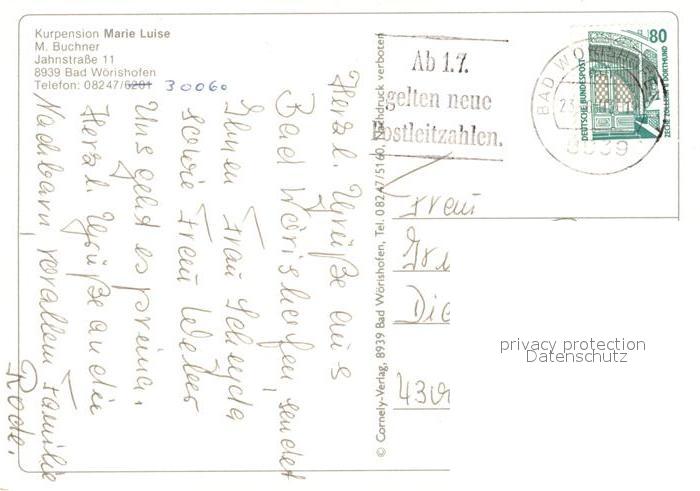 Kurpension Marie Luise
M. Buchner
Jahnstraße 11
8939 Bad Wörishofen
Telefon: 08247/6201 30060
Herzl. Grüße aus
Bad Wörishofen, sendet
Ihnen Frau Schmyda
sowie Frau Weber
Uns geht es prima.
Herzl. Grüße an die
Nachbarn, vorallem Familie
Rode.
© Cornely-Verlag, 8939 Bad Wörishofen, Tel. 08247/5160, Nachdruck verboten
Ab 1.7.
gelten neue
Postleitzahlen.
BAD WÖ
23
8939
80
DEUTSCHE BUNDESPOST
ZECHE ZOLLERN II DORTMUND
Frau
Die
430
privacy protection
Datenschutz